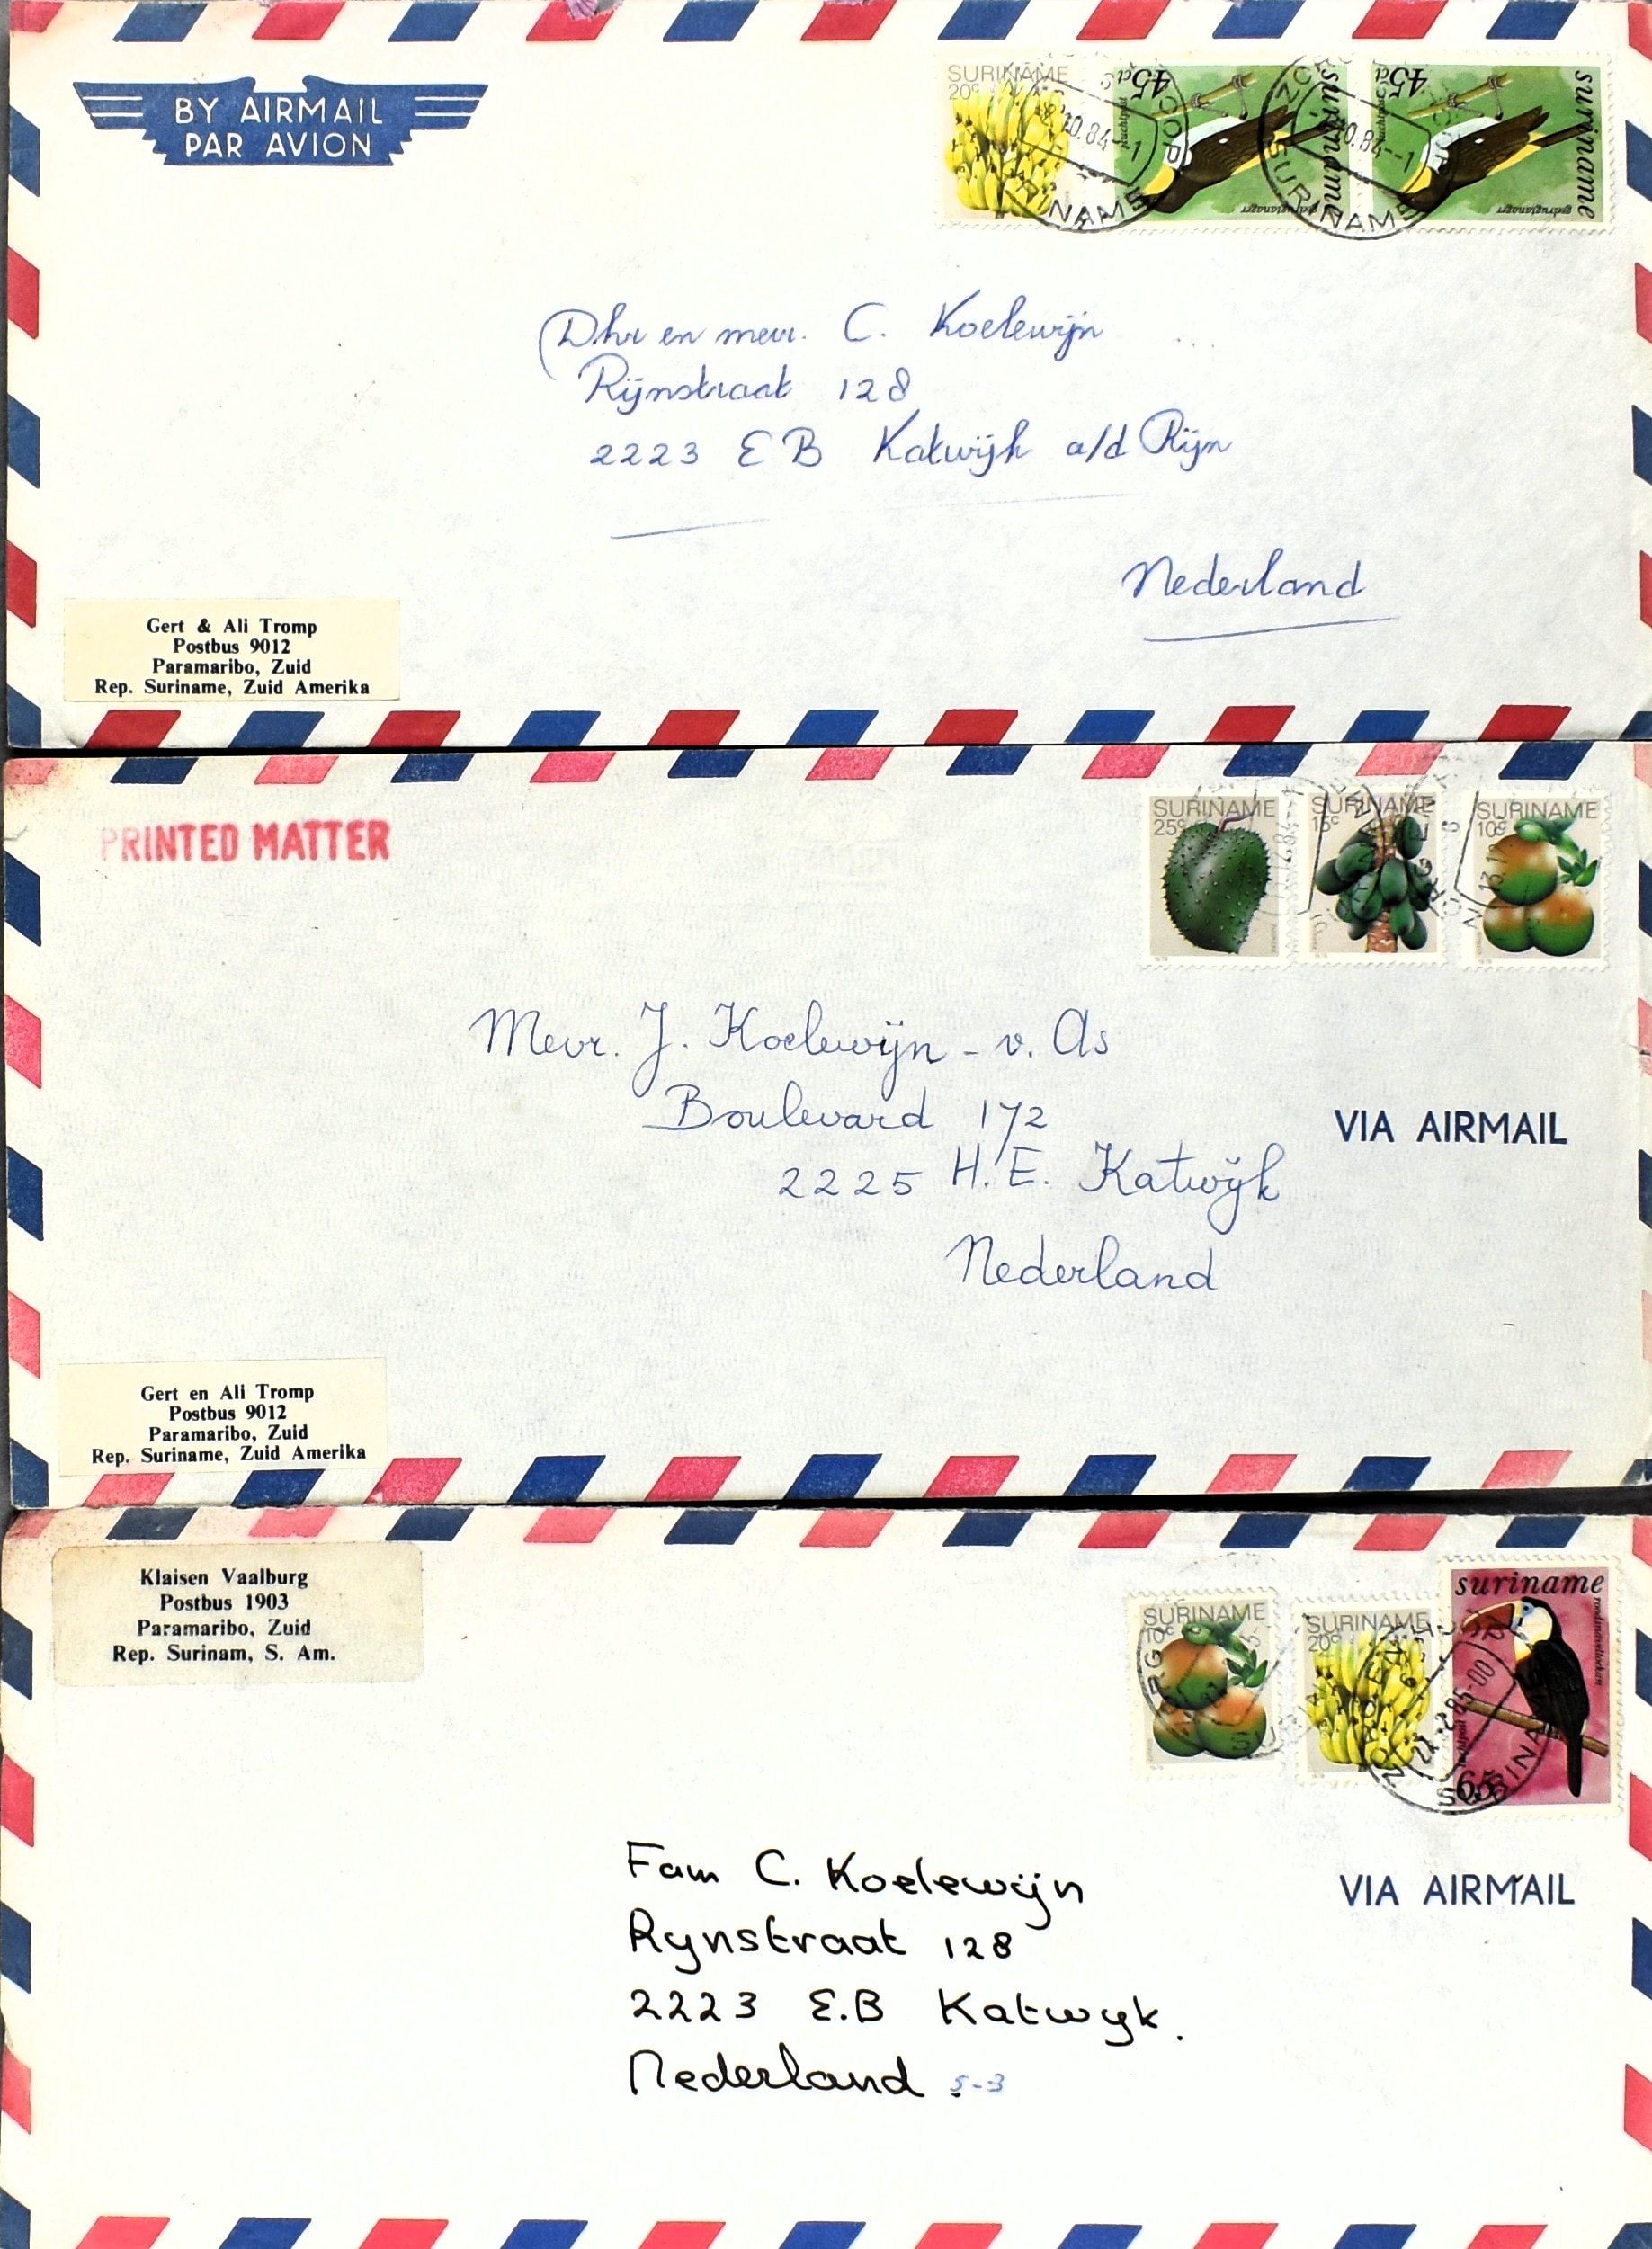 BY AIRMAIL
PAR AVION
SURINAME
20c
45ct
suriname
45ct
suriname
SURINAME
SURINAME
Dhr en mevr. C. Koelewijn
Rijnstraat 128
2223 EB Katwijk a/d Rijn
Nederland
Gert & Ali Tromp
Postbus 9012
Paramaribo, Zuid
Rep. Suriname, Zuid Amerika
PRINTED MATTER
SURINAME
25c
SURINAME
15c
SURINAME
10c
Mevr. J. Koelewijn - v. As
Boulevard 172
VIA AIRMAIL
2225 H.E. Katwijk
Nederland
Gert en Ali Tromp
Postbus 9012
Paramaribo, Zuid
Rep. Suriname, Zuid Amerika
Klaisen Vaalburg
Postbus 1903
Paramaribo, Zuid
Rep. Surinam, S. Am.
SURINAME
10c
SURINAME
20c
suriname
65
Fam C. Koelewijn
VIA AIRMAIL
Rynstraat 128
2223 E.B Katwyk.
Nederland 5-3